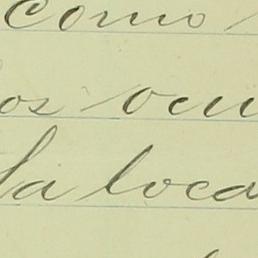 como
os ocu
la loca